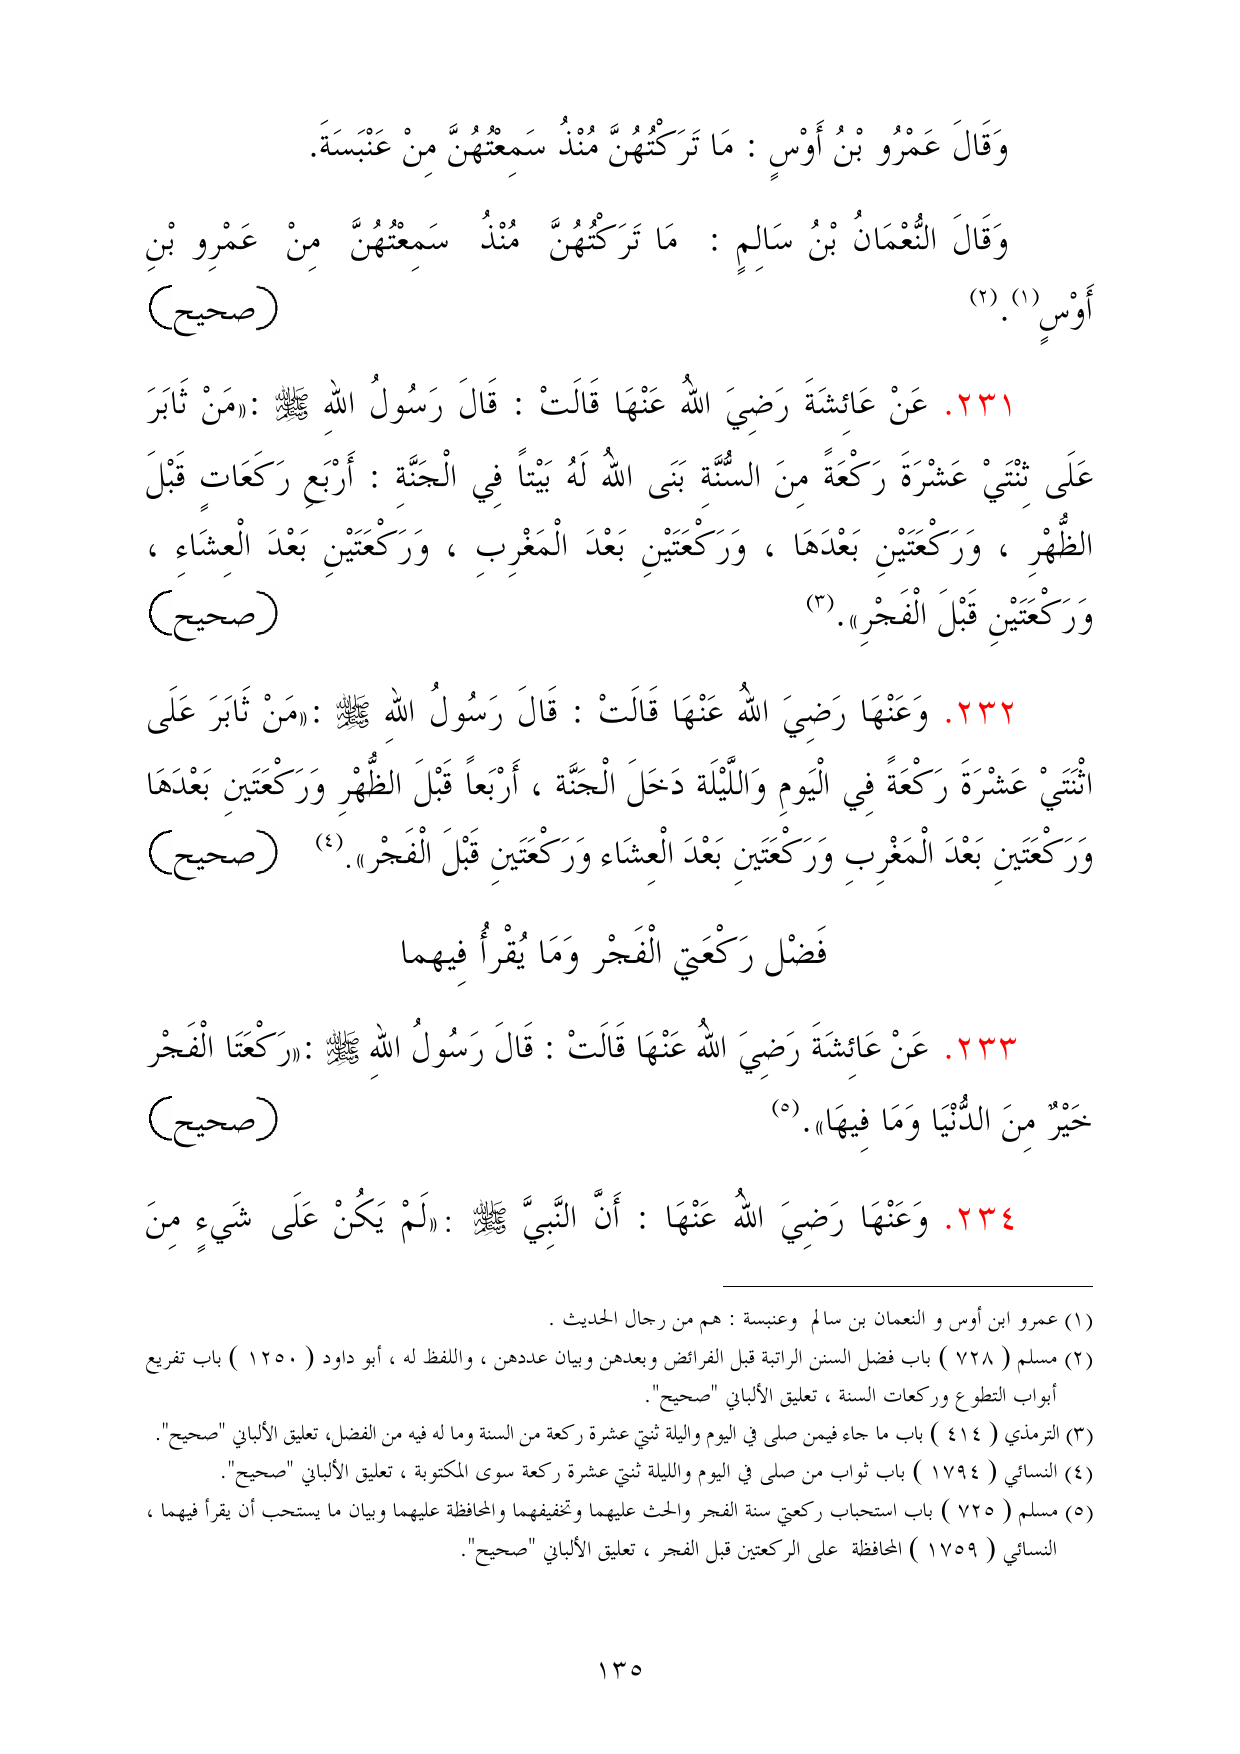 وَقَالَ عَمْرُو بْنُ أَوْسٍ : مَا تَرَكْتُهُنَّ مُنْذُ سَمِعْتُهُنَّ مِنْ عَنْبَسَةَ.
وَقَالَ النُّعْمَانُ بْنُ سَالِمٍ : مَا تَرَكْتُهُنَّ مُنْذُ سَمِعْتُهُنَّ مِنْ عَمْرِو بْنِ
أَوْسٍ(١).(٢) (صحيح)
٢٣١. عَنْ عَائِشَةَ رَضِيَ اللهُ عَنْهَا قَالَتْ : قَالَ رَسُولُ اللهِ ﷺ :«مَنْ ثَابَرَ
عَلَى ثِنْتَيْ عَشْرَةَ رَكْعَةً مِنَ السُّنَّةِ بَنَى اللهُ لَهُ بَيْتاً فِي الْجَنَّةِ : أَرْبَعِ رَكَعَاتٍ قَبْلَ
الظُّهْرِ ، وَرَكْعَتَيْنِ بَعْدَهَا ، وَرَكْعَتَيْنِ بَعْدَ الْمَغْرِبِ ، وَرَكْعَتَيْنِ بَعْدَ الْعِشَاءِ ،
وَرَكْعَتَيْنِ قَبْلَ الْفَجْرِ».(٣) (صحيح)
٢٣٢. وَعَنْهَا رَضِيَ اللهُ عَنْهَا قَالَتْ : قَالَ رَسُولُ اللهِ ﷺ :«مَنْ ثَابَرَ عَلَى
اثْنَتَيْ عَشْرَةَ رَكْعَةً فِي الْيَومِ وَاللَّيْلَة دَخَلَ الْجَنَّة ، أَرْبَعاً قَبْلَ الظُّهْرِ وَرَكْعَتَينِ بَعْدَهَا
وَرَكْعَتَينِ بَعْدَ الْمَغْرِبِ وَرَكْعَتَينِ بَعْدَ الْعِشَاء وَرَكْعَتَينِ قَبْلَ الْفَجْر».(٤) (صحيح)
فَضْل رَكْعَتِي الْفَجْر وَمَا يُقْرأُ فِيهما
٢٣٣. عَنْ عَائِشَةَ رَضِيَ اللهُ عَنْهَا قَالَتْ : قَالَ رَسُولُ اللهِ ﷺ :«رَكْعَتَا الْفَجْر
خَيْرٌ مِنَ الدُّنْيَا وَمَا فِيهَا».(٥) (صحيح)
٢٣٤. وَعَنْهَا رَضِيَ اللهُ عَنْهَا : أَنَّ النَّبِيَّ ﷺ :«لَمْ يَكُنْ عَلَى شَيءٍ مِنَ
(١) عمرو ابن أوس و النعمان بن سالم وعنبسة : هم من رجال الحديث .
(٢) مسلم ( ٧٢٨ ) باب فضل السنن الراتبة قبل الفرائض وبعدهن وبيان عددهن ، واللفظ له ، أبو داود ( ١٢٥٠ ) باب تفريع
أبواب التطوع وركعات السنة ، تعليق الألباني "صحيح".
(٣) الترمذي ( ٤١٤ ) باب ما جاء فيمن صلى في اليوم واليلة ثنتي عشرة ركعة من السنة وما له فيه من الفضل، تعليق الألباني "صحيح".
(٤) النسائي ( ١٧٩٤ ) باب ثواب من صلى في اليوم والليلة ثنتي عشرة ركعة سوى المكتوبة ، تعليق الألباني "صحيح".
(٥) مسلم ( ٧٢٥ ) باب استحباب ركعتي سنة الفجر والحث عليهما وتخفيفهما والمحافظة عليهما وبيان ما يستحب أن يقرأ فيهما ،
النسائي ( ١٧٥٩ ) المحافظة على الركعتين قبل الفجر ، تعليق الألباني "صحيح".
١٣٥